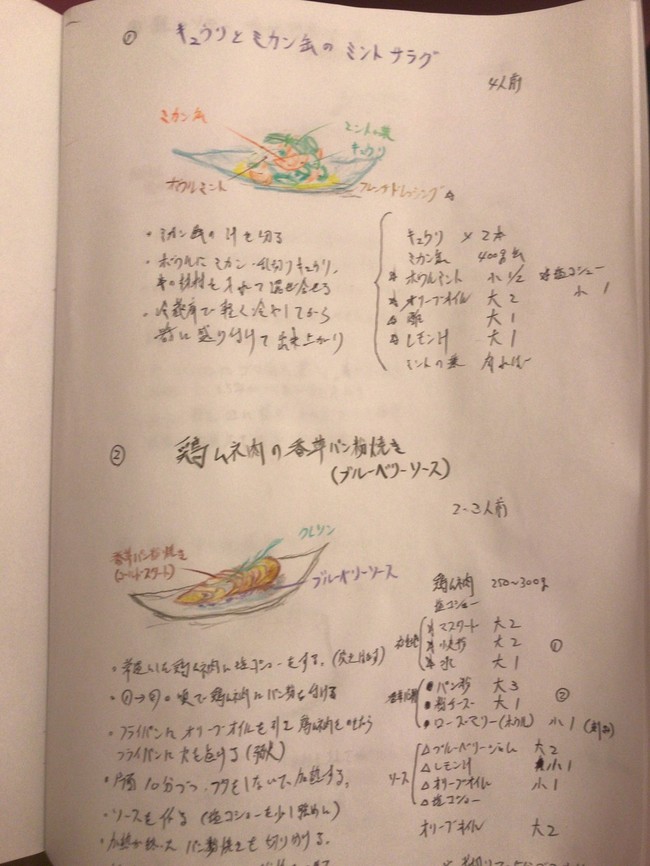 ① キュウリとミカン缶のミントサラダ
4人前
ミカン缶
ミントの葉
キュウリ
ホウルミント
フレンチドレッシング
・ミカン缶の汁を切る
・ボウルにミカン・乱切りキュウリ、
の材料を入れて混ぜ合せる
・冷蔵庫で軽く冷やしてから
器に盛り付けて出来上がり
キュウリ × 2本
ミカン缶 400g缶
ホウルミント 小 1/2
塩コショー
小 1
オリーブオイル 大 2
酢 大 1
レモン汁 大 1
ミントの葉 有れば
② 鶏ムネ肉の香草パン粉焼き
(ブルーベリーソース)
2〜3人前
クレソン
香草パン粉焼き
(コールドスタート)
ブルーベリーソース
鶏ムネ肉 250〜300g
塩コショー
マスタード 大 2
小麦粉 大 2
水 大 1
①
香草パン粉
● パン粉 大 3
● 粉チーズ 大 1
● ローズマリー(ホウル) 小 1
②
ソース
△ ブルーベリージャム 大 2
△ レモン汁 小 1
△ オリーブオイル 小 1
△ 塩コショー
オリーブオイル 大 2
・ 鶏ムネ肉に塩コショーをする。
・①→②の順で鶏ムネ肉にパン粉を付ける
・フライパンにオリーブオイルを引き鶏ムネ肉を
フライパンに火を点ける
・片面10分づつ、フタをしないで加熱する。
・ソースを作る (塩コショーを少し強めに)
・加熱が終った パン粉焼きを切り分ける。